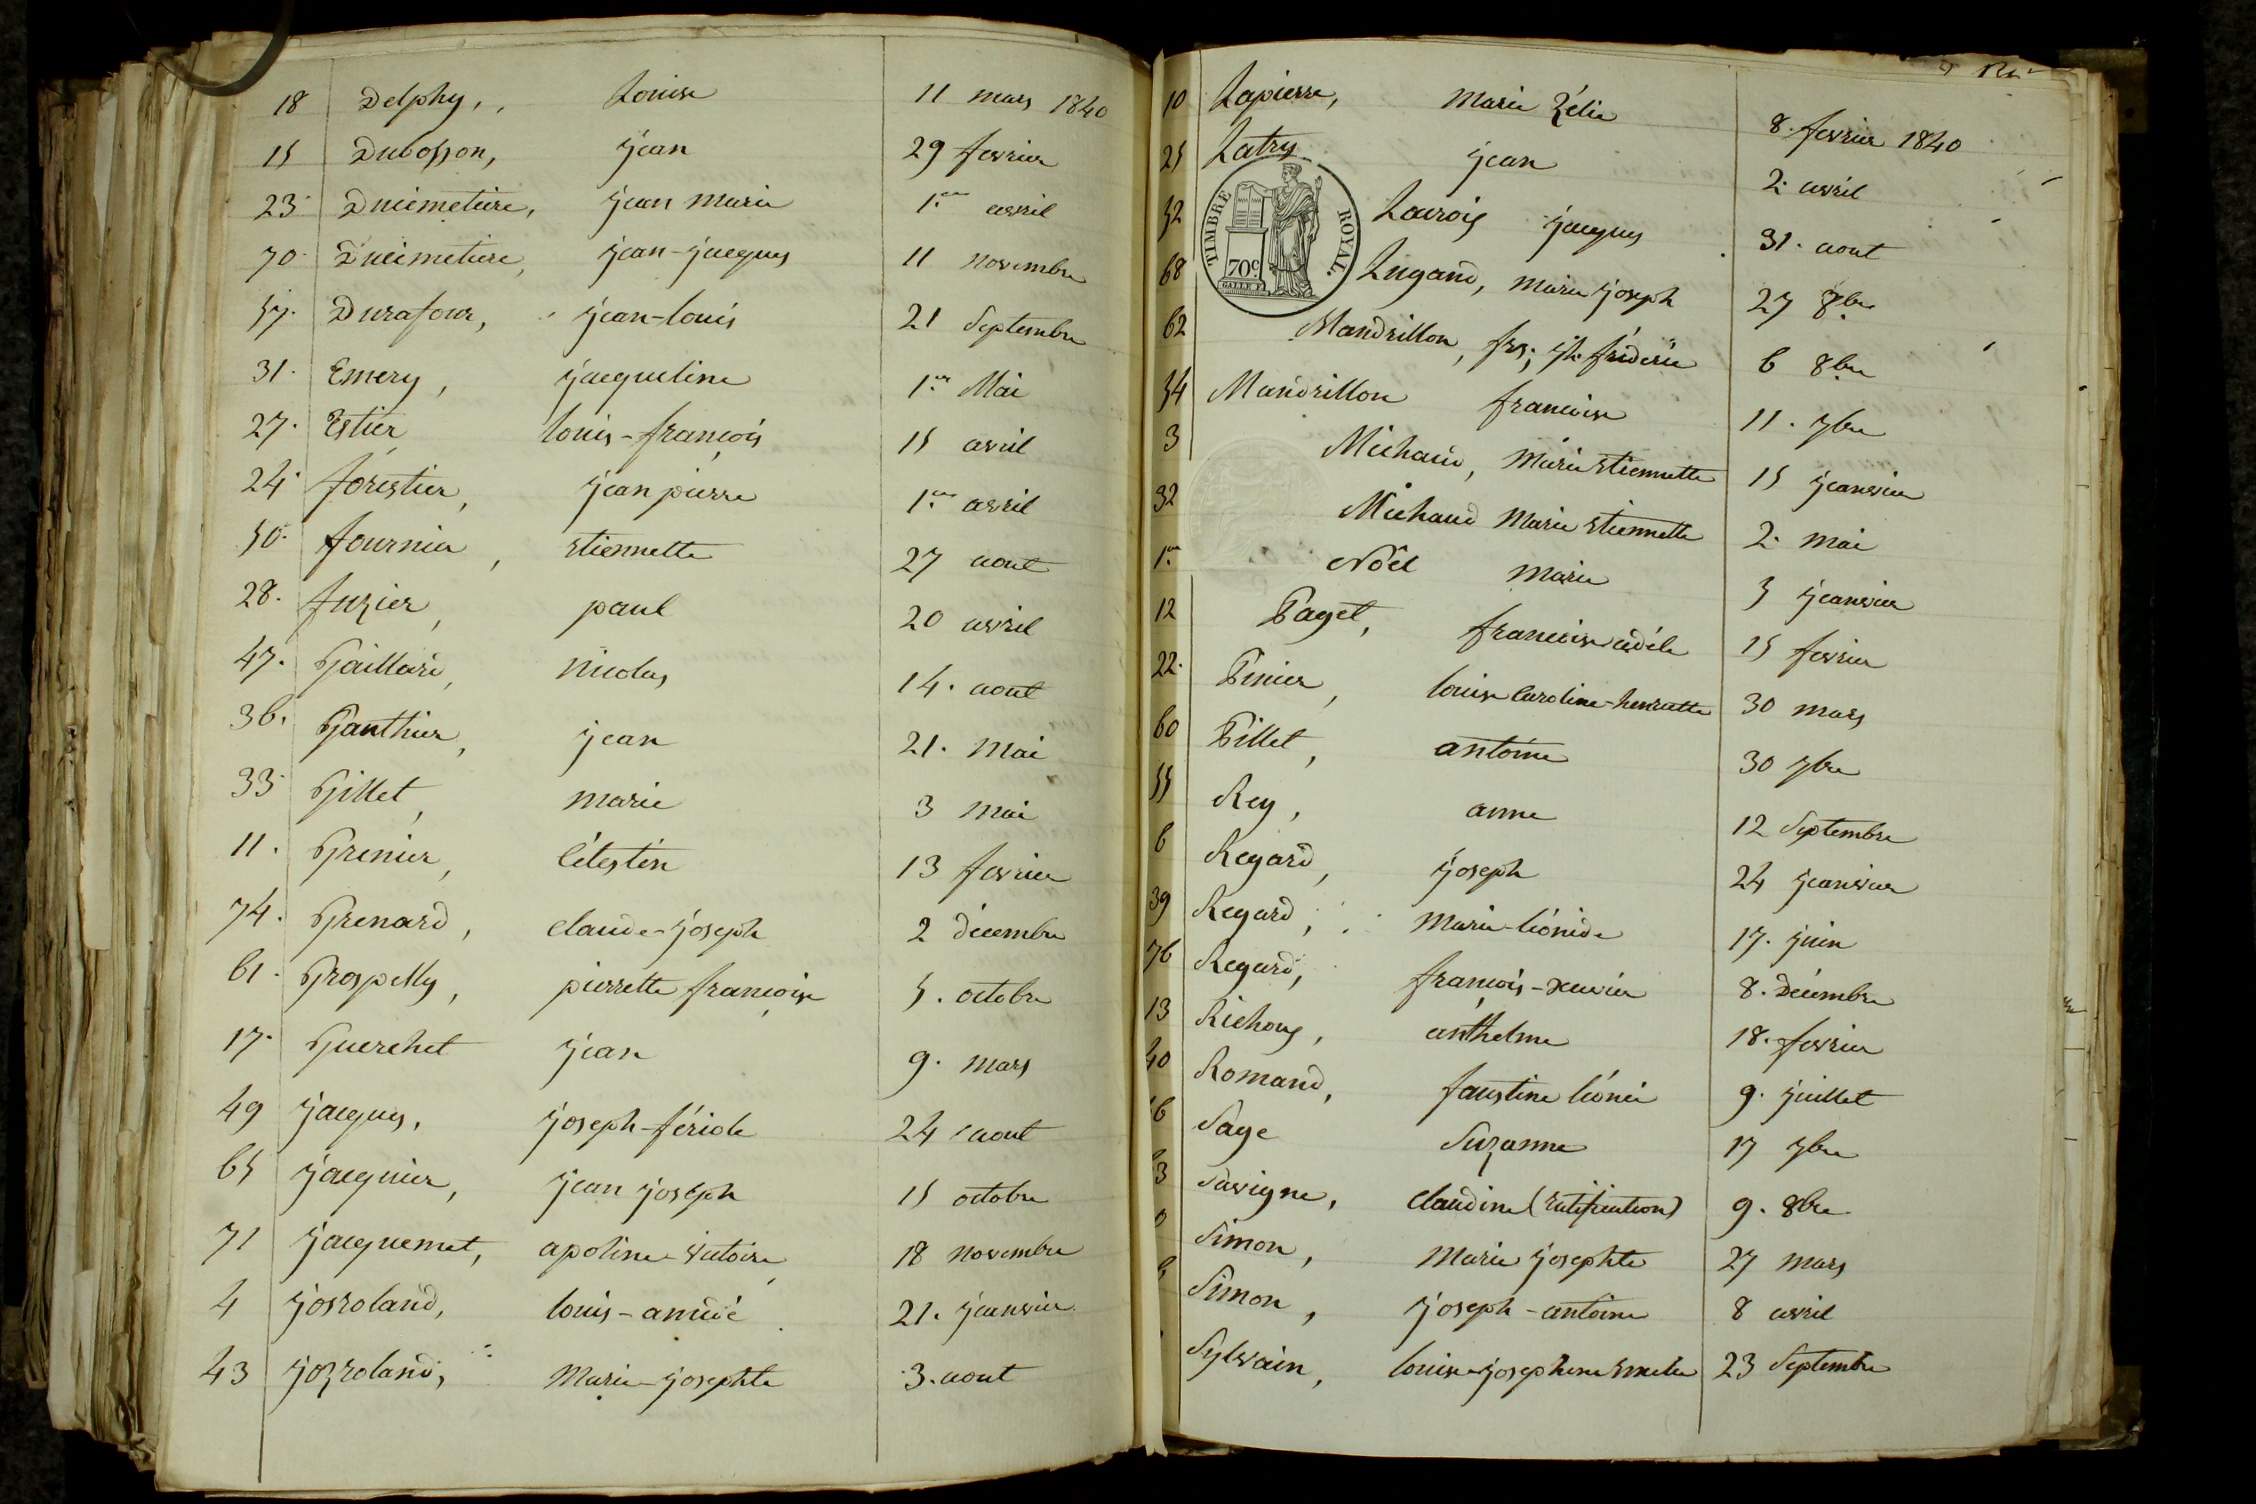 18 Delphy, Louise 11 mars 1840
15 Dubosson, jean 29 fevrier
23 Ducimetiere, jean marie 1.er avril
70 Ducimetiere, jean-jacques 11 novembre
57. Durafour, jean-louis 21 Septembre
31. Emery, jacqueline 1.er Mai
27. Estier louis-françois 15 avril
24. forestier, jean pierre 1.er avril
50. fournier, etiennette 27 aout
28. fuzier, paul 20 avril
47. Gaillard, nicolas 14. aout
36. Gauthier, jean 21. Mai
33 Gillet, marie 3 Mai
11. Grenier, Célestin 13 fevrier
74. Grenard, claude-joseph 2 décembre
61. Grospelly, pierrette françoise 5. octobre
17. Guerchet jean 9. mars
49 jacques, joseph-fériole 24 aout
65 jacquier, jean joseph 15 octobre
71 jacquemet, apoline-victoire 18 novembre
4 josroland, louis-amédé 21. janvier
43 jozroland, Marie-josephte 3. aout
10 Lapierre, Marie Zélie 8. fevrier 1840
25 Latry jean 2. avril
TIMBRE ROYAL.
70c
52 Lavrois jacques 31. aout
68 Lugand, marie joseph 27 8bre
62 Mandrillon, frs; jh. fréderic 6 8bre
54 Mandrillon francoise 11. 7bre
3 Michaud, Marie etiennette 15 janvier
32 Michaud Marie etiennette 2. mai
1.er Noêl marie 3 janvier
12 Paget, francoise adéle 15 fevrier
22. Pinier, louise Caroline-henriette 30 mars
60 Pillet, antoine 30 7bre
55 Rey, anne 12 Septembre
6 Regard, joseph 24 janvier
39 Regard, Marie-léonide 17. juin
76 Regard, françois-xavier 8. Décembre
13 Richoux, anthelme 18. fevrier
40 Romand, faustine léonie 9. juillet
Sage Suzanne 17 7bre
Savigne, Claudine (ratification) 9. 8bre
Simon, Marie josephte 27 mars
Simon, joseph-antoine 8 avril
Sylvain, louise-josephine Emelie 23 Septembre